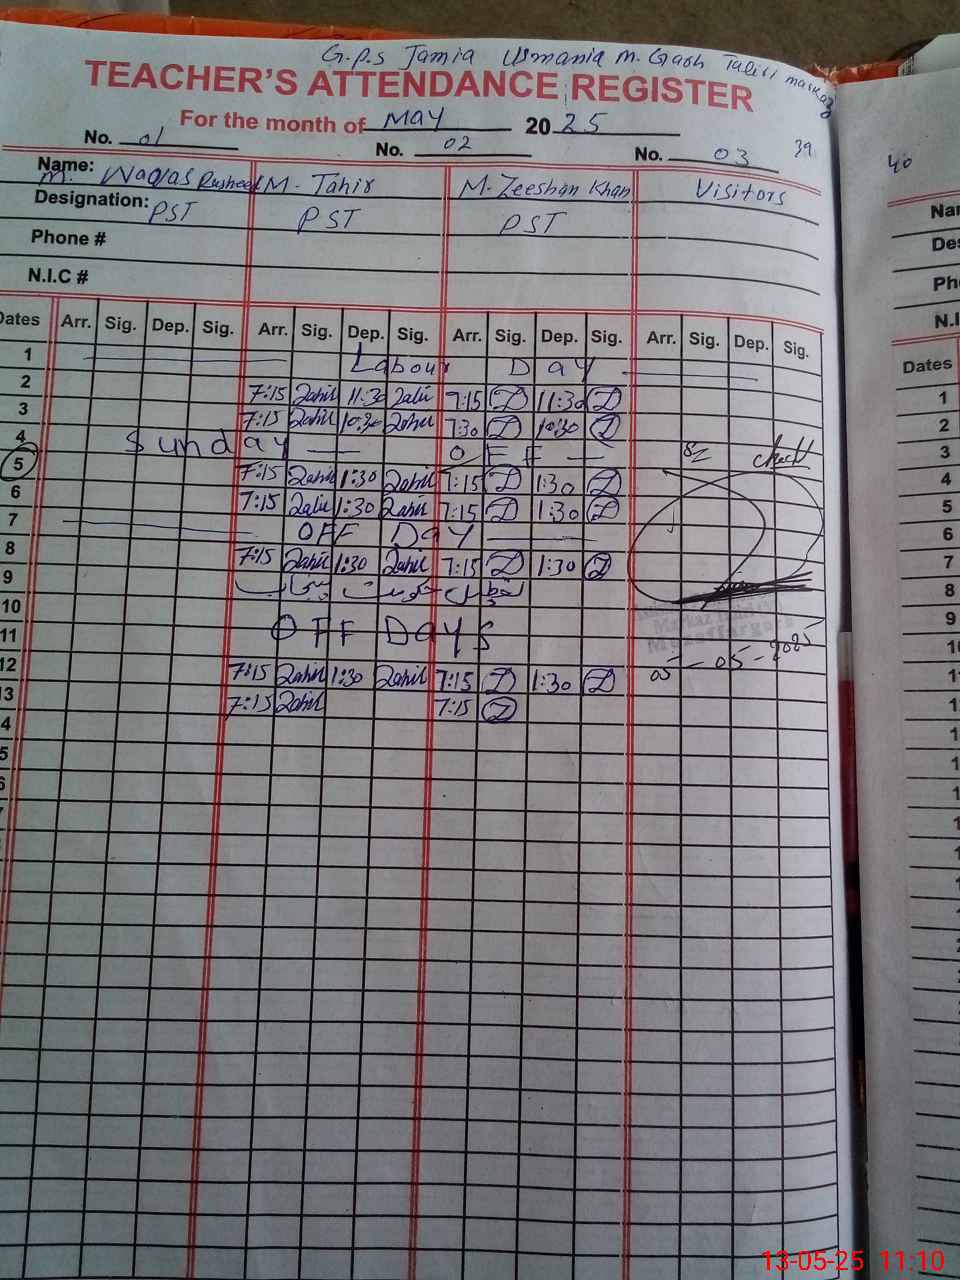 G.p.s Jamia Usmania M. Garh
TEACHER'S ATTENDANCE REGISTER
For the month of May 2025
No. 01 No. 02 No. 03 39
Name: M. Waqas Rasheed M. Tahir M. Zeeshan Khan Visitors
Designation: PST PST PST
Phone #
N.I.C #
Dates Arr. Sig. Dep. Sig. Arr. Sig. Dep. Sig. Arr. Sig. Dep. Sig. Arr. Sig. Dep. Sig.
1 Labour Day
2 7:15 Tahir 11:30 Tahir 7:15 Z 11:30 Z
3 7:15 Tahir 10:30 Tahir 7:30 Z 10:30 Z
4 Sunday OFF
5 7:15 Tahir 1:30 Tahir 7:15 Z 1:30 Z
6 7:15 Tahir 1:30 Tahir 7:15 Z 1:30 Z
7 OFF Day
8 7:15 Tahir 1:30 Tahir 7:15 Z 1:30 Z
9
10
11 OFF Days
12 7:15 Tahir 1:30 Tahir 7:15 Z 1:30 Z
13 7:15 Tahir 7:15 Z
4
5
6
check
Markaz
Muzaffargarh
05-05-2025
40
Nar
Des
Pho
N.I
Dates
1
2
3
4
5
6
7
8
9
10
11
13-05-25 11:10